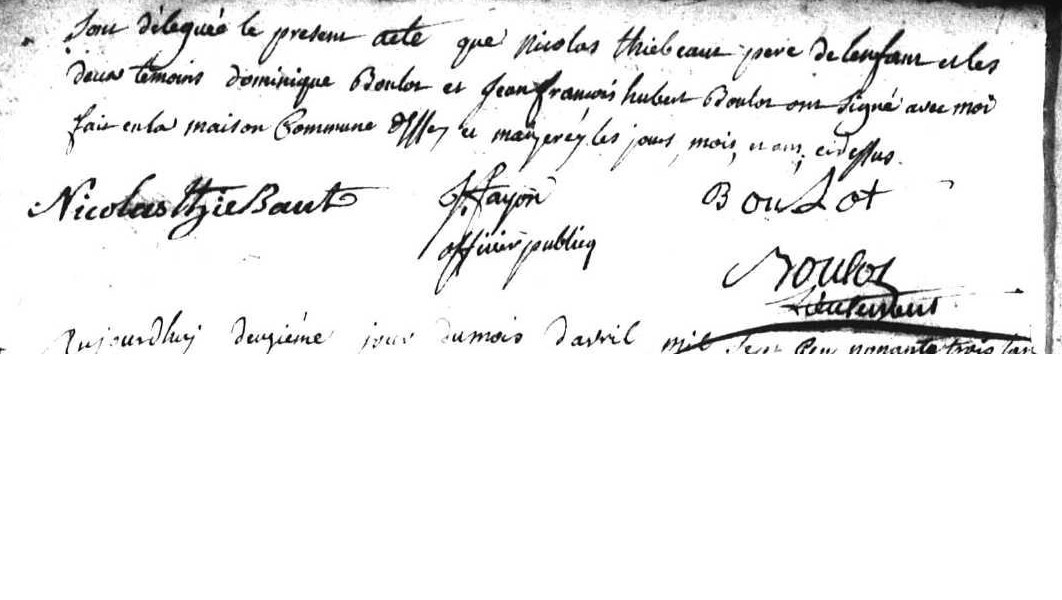 sont délegués le present acte que nicolas thiebeaut pere de lenfant et les
deux temoins dominique Boulot et jean francois hubert Boulot ont signé avec moi
fait en la maison Commune dessey et maizerey les jours, mois, et ans, cidessus.
Nicolas thieBaut fayon BouLot
officier publicq
Boulot
Lieutenant
Aujourdhuy deuzième jour du mois davril mil sept Cen nonante trois lan